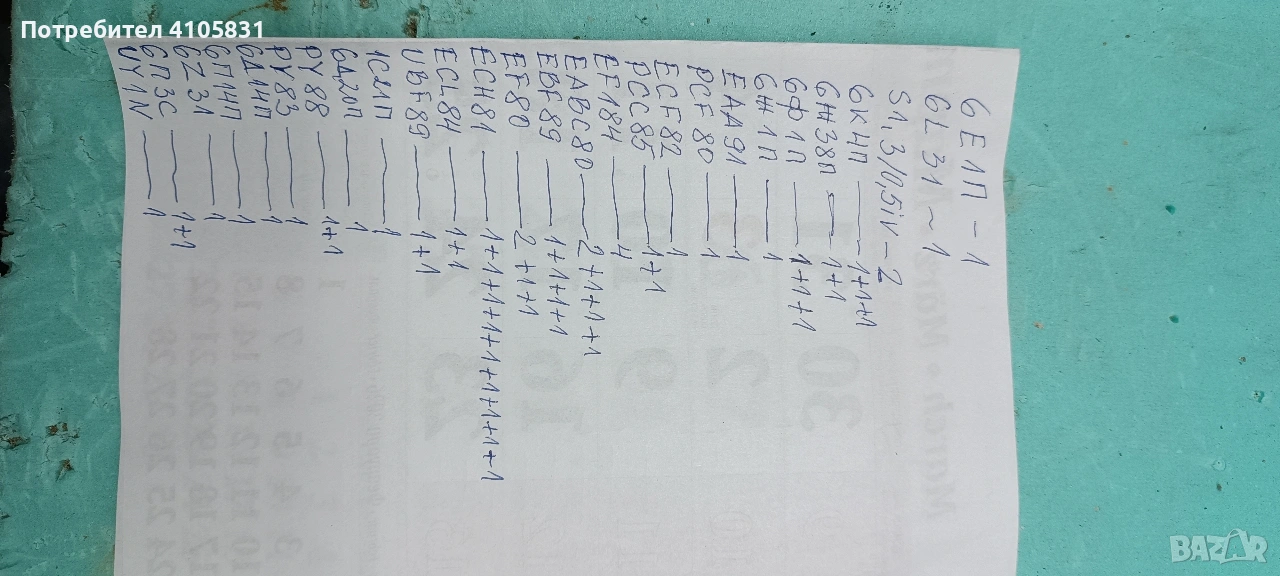 Потребител 4105831
6Е1П - 1
6L31 ~ 1
S1,3/0,5iV - 2
6К4П — 1+1+1
6Ж38П — 1+1
6Ф1П — 1+1+1
6Ж1П — 1
EAA91 — 1
PCF80 — 1
ECF82 — 1
PCC85 — 1+1
EF184 — 4
EABC80 — 2+1+1+1
EBF89 — 1+1+1+1
EF80 — 2+1+1
ECH81 — 1+1+1+1+1+1+1+1+1+1
ECL84 — 1+1
UBF89 — 1+1
1С21П — 1
6Д20П — 1
PY88 — 1+1
PY83 — 1
6Д14П — 1
6П14П — 1
6Z31 — 1
6П3С — 1+1
UY1N — 1
BAZAR